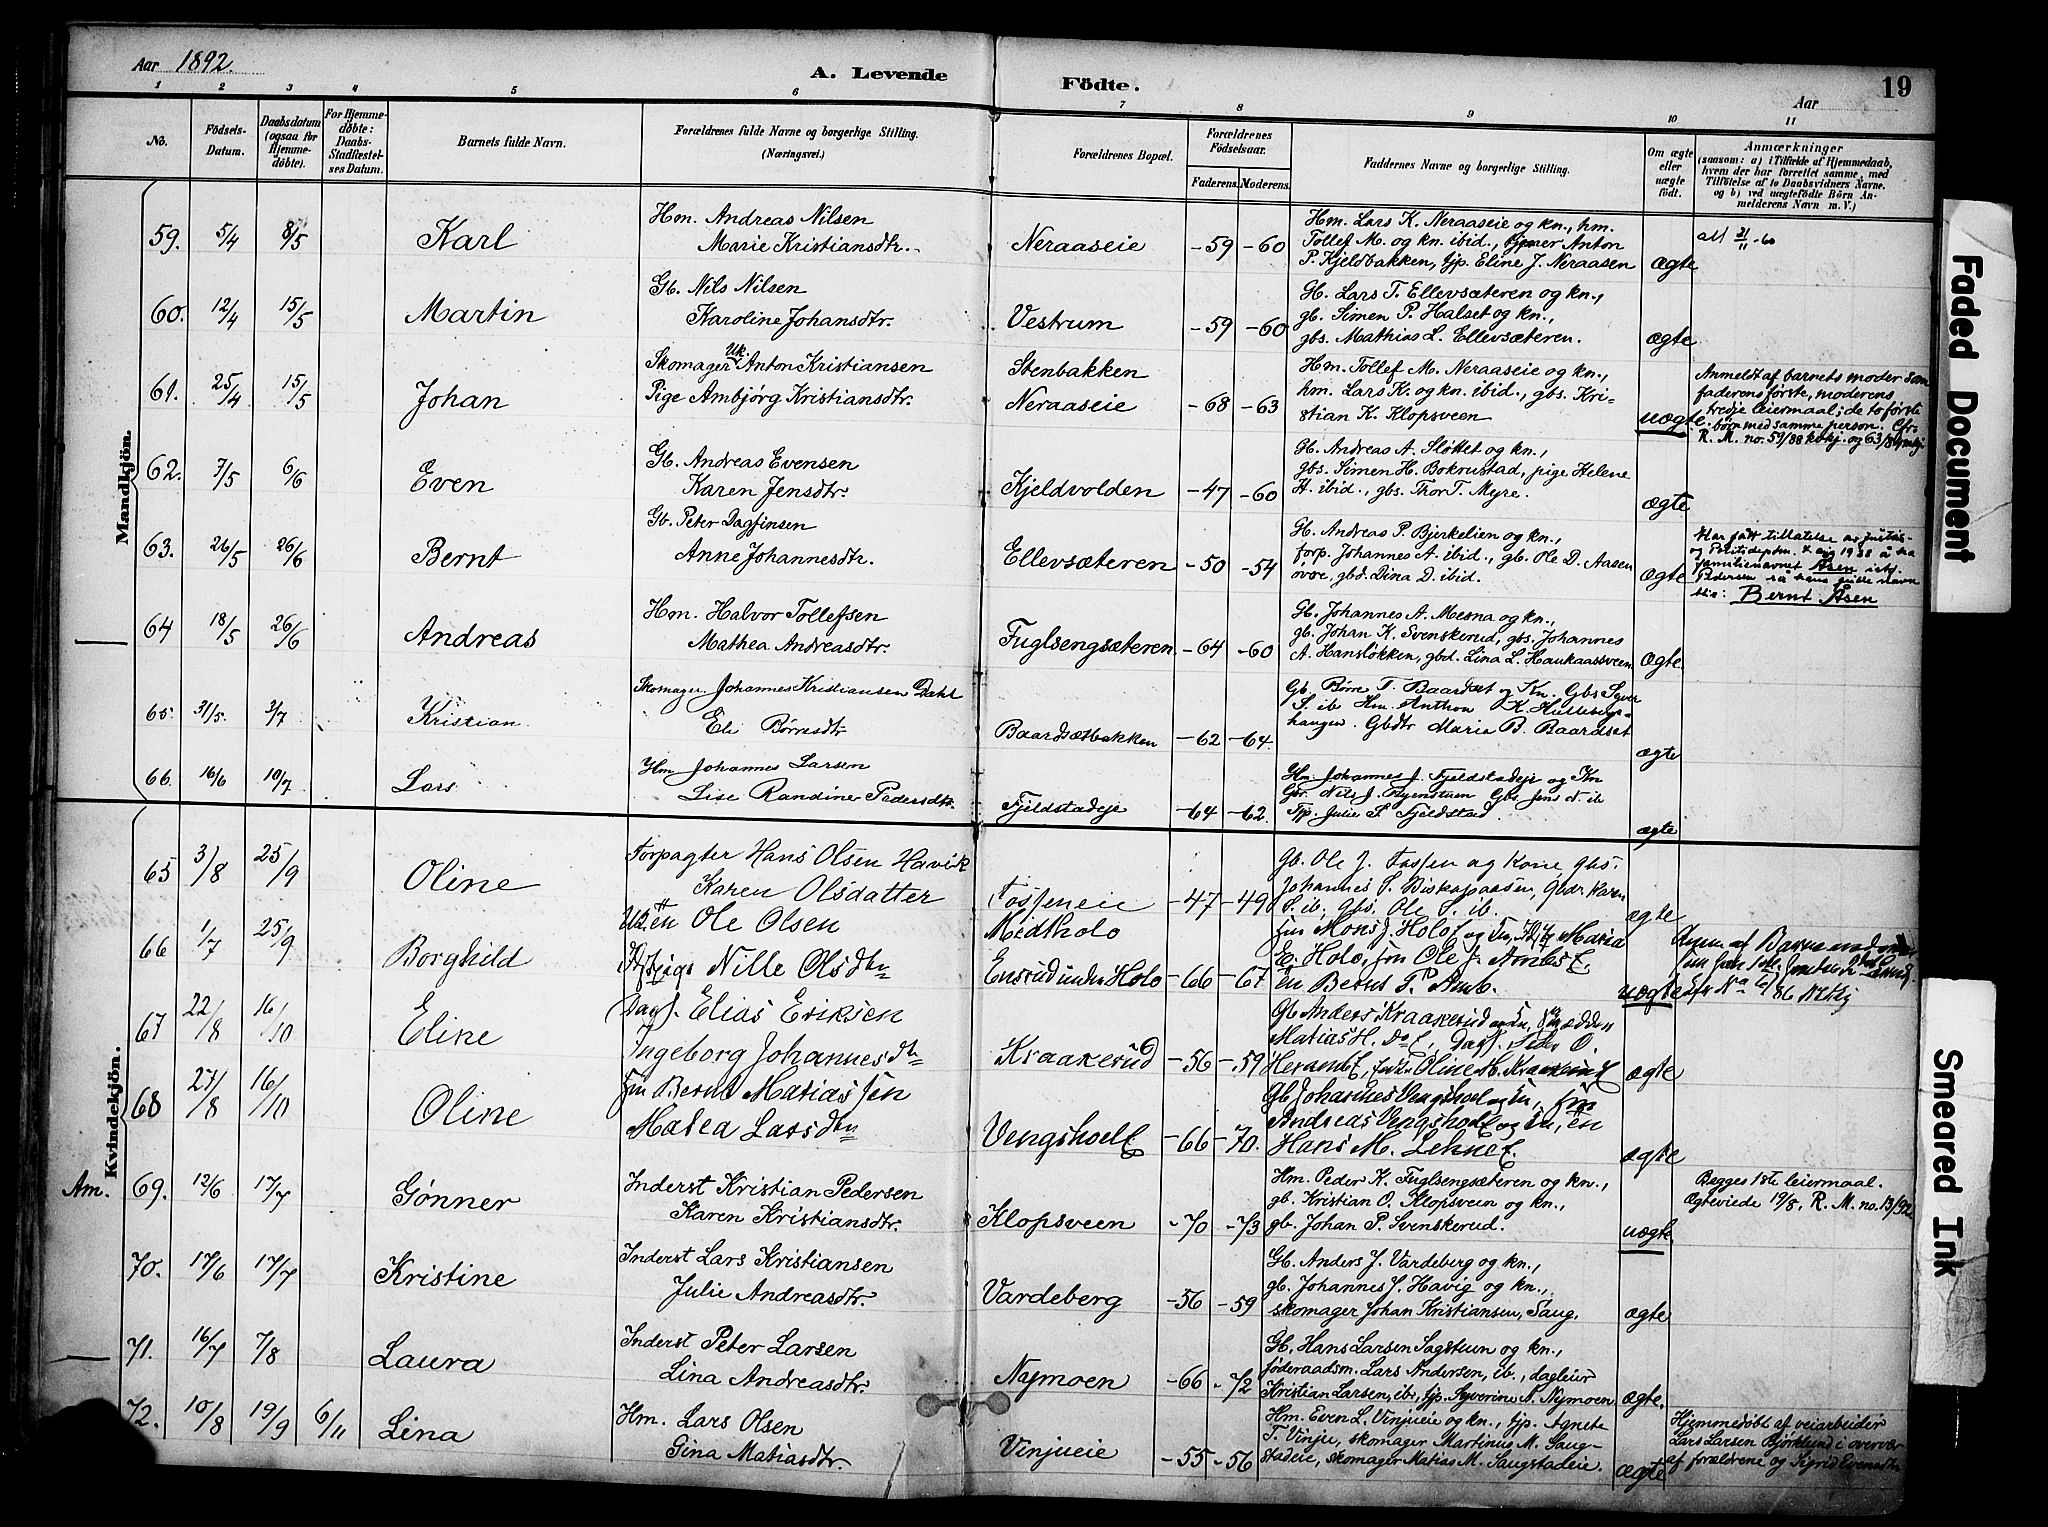 Aar 1892.
A. Levende
Födte.
Aar
19
1 2 3 4 5 6 7 8 9 10 11
No.
Födsels-Datum.
Daabsdatum (ogsaa for Hjemmedöbte).
For Hjemmedöbte: Daabs-Stadfæstelses Datum.
Barnets fulde Navn.
Forældrenes fulde Navne og borgerlige Stilling.
(Næringsvei.)
Forældrenes Bopæl.
Forældrenes Födselsaar.
Faderens. Moderens.
Faddernes Navne og borgerlige Stilling.
Om ægte eller uægte födt.
Anmærkninger
(saasom: a) i Tilfælde af Hjemmedaab, hvem der har forrettet samme, med Tilföielse af to Daabsvidners Navne. og b) ved uægtefödte Börn Anmelderens Navn m. V.)
Mandkjön.
59. 5/4 8/5 Karl
Hm. Andreas Nilsen
Marie Kristiansdtr.
Neraaseie -59 -60
Hm. Lars K. Neraaseie og kn., hm.
Tollef M. og kn. ibid., tjener Anton
P. Kjeldbakken, tjp. Eline J. Neraasen
ægte
att 21/11-60
60. 12/4 15/5 Martin
Gb. Nils Nilsen
Karoline Johansdtr.
Vestrum -59 -60
Gb. Lars T. Ellevsæteren og kn.,
gb. Simen P. Halset og kn.,
gbs. Mathias L. Ellevsæteren.
ægte
61. 25/4 15/5 Johan
Skomager Uk. Anton Kristiansen
Pige Ambjörg Kristiansdtr.
Stenbakken
Neraaseie -68 -63
Hm. Tollef M. Neraaseie og kn.,
hm. Lars K. og kn. ibid., gbs. Kri-
stian K. Klopsveen
uægte
Anmeldt af barnets moder som
faderens første, moderens
tredje leiermaal; de to første
børn med samme person. Cfr.
R. M. no. 59/88
62. 7/5 6/6 Even
Gb. Andreas Evensen
Karen Jensdtr.
Kjeldvolden -47 -60
Gb. Andreas A. Sløttet og kn.,
gbs. Simen H. Bokrustad, pige Helene
H. ibid., gbs. Thor T. Myre.
ægte
63. 26/5 26/6 Bernt
Gb. Peter Dagfinsen
Anne Johannesdtr.
Ellevsæteren -50 -54
Gb. Andreas P. Bjerkelien og kn.,
forp. Johannes A. ibid., gb. Ole D. Aasen
øvre, gbd. Dina D. ibid.
ægte
Har fått tillatelse av Justis-
og Politideptm. 1938 å ta
familienavnet Åsen istf.
Pedersen så hans fulde navn
blir: Bernt Åsen
64 18/5 26/6 Andreas
Hm. Halvor Tollefsen
Mathea Andreasdtr.
Fuglsengsæteren -64 -60
Gb. Johannes A. Mesna og kn.,
gb. Johan K. Svenskerud, gbs. Johannes
A. Hansløkken, gbd. Lina L. Haukaassveen
ægte.
65. 31/5. 3/7 Kristian.
Skomager. Johannes Kristiansen Dahl
Eli Børresdtr
Baardsætbakken -62 -64.
Gb. Børre T. Baardset og Kn. Gbs Syver
S. ib Hm. Anthon K. Hullebergs-
haugen. Gbdtr Maria B. Baardset
ægte
66. 16/6 10/7 Lars
Hm Johannes Larsen
Lise Randine Pedersdtr.
Fjeldstadeje -64 -62.
Hm. Johannes J. Fjeldstadeje og Kn
Gbr. Nils J. Gbs. Jens N. ib
Tjp. Julie P. Fjeldstad.
ægte
Kvindekjön.
65 31/8 25/9 Oline
Forpagter Hans Olsen Havik
Karen Olsdatter
-47 -49
Gb. Ole J. og Kone, gbs.
Johannes S. Biskopaasen, Gbdr Karen
S. ib; gbs. Ole S. ib.
ægte
66 1/7 25/9 Borghild
Ole Olsen
Nille Olsdtr
Midtholo
Ensrud under Holo -66 -67
Mons J. Holo
Holo, Ole
Bernt P.
uægte
67 22/8 16/10 Eline
Dagl. Elias Eriksen
Ingeborg Johannesdtr
Kraakerud -56 -59
Gb Anders Kraakerud
Matias H.
ægte
68 27/8 16/10 Oline
Bernt Matiassen
Matea Larsdtr
Vengsholl -66 -70.
Gb Johannes
Andreas
Hans M.
ægte
Am. 69. 12/6 17/7 Gønner
Inderst Kristian Pedersen
Karen Kristiansdtr.
Klopsveen -70 -73
Hm. Peder K. Fuglsengsæteren og kn.,
gb. Kristian O. Klopsveen og kn.,
gb. Johan P. Svenskerud.
uægte
Begges 1ste leiermaal.
Ægteviede 19/8. R. M. no. 13/92.
70. 17/6 17/7 Kristine
Inderst Lars Kristiansen
Julie Andreasdtr.
Vardeberg -56 -59
Gb. Anders J. Vardeberg og kn.,
gb. Johannes J. Havig og kn.,
skomager Johan Kristiansen, Saug.
ægte
71. 16/7 7/8 Laura
Inderst Peter Larsen
Lina Andreasdtr.
Nymoen -66 -72
Gb. Hans Larsen Sagstuen og kn.,
föderaadsm. Lars Andersen, ib., dagleier
Kristian Larsen, ib., tjp. Syverine A. Nymoen
ægte.
72. 10/8 19/9 6/11 Lina
Hm. Lars Olsen
Gina Matiasdtr.
Vinjueie -55 -56
Hm. Even L. Vinjueie og kn., tjp. Agnete
T. Vinju, skomager Martinus M. Saug-
stadeie, skomager Matias M. Saugstadeie.
ægte
Hjemmedöbt af veiarbeider
Lars Larsen Björklund i overvær
af forældrene og Sigrid Evensdtr
Faded Document
Smeared Ink